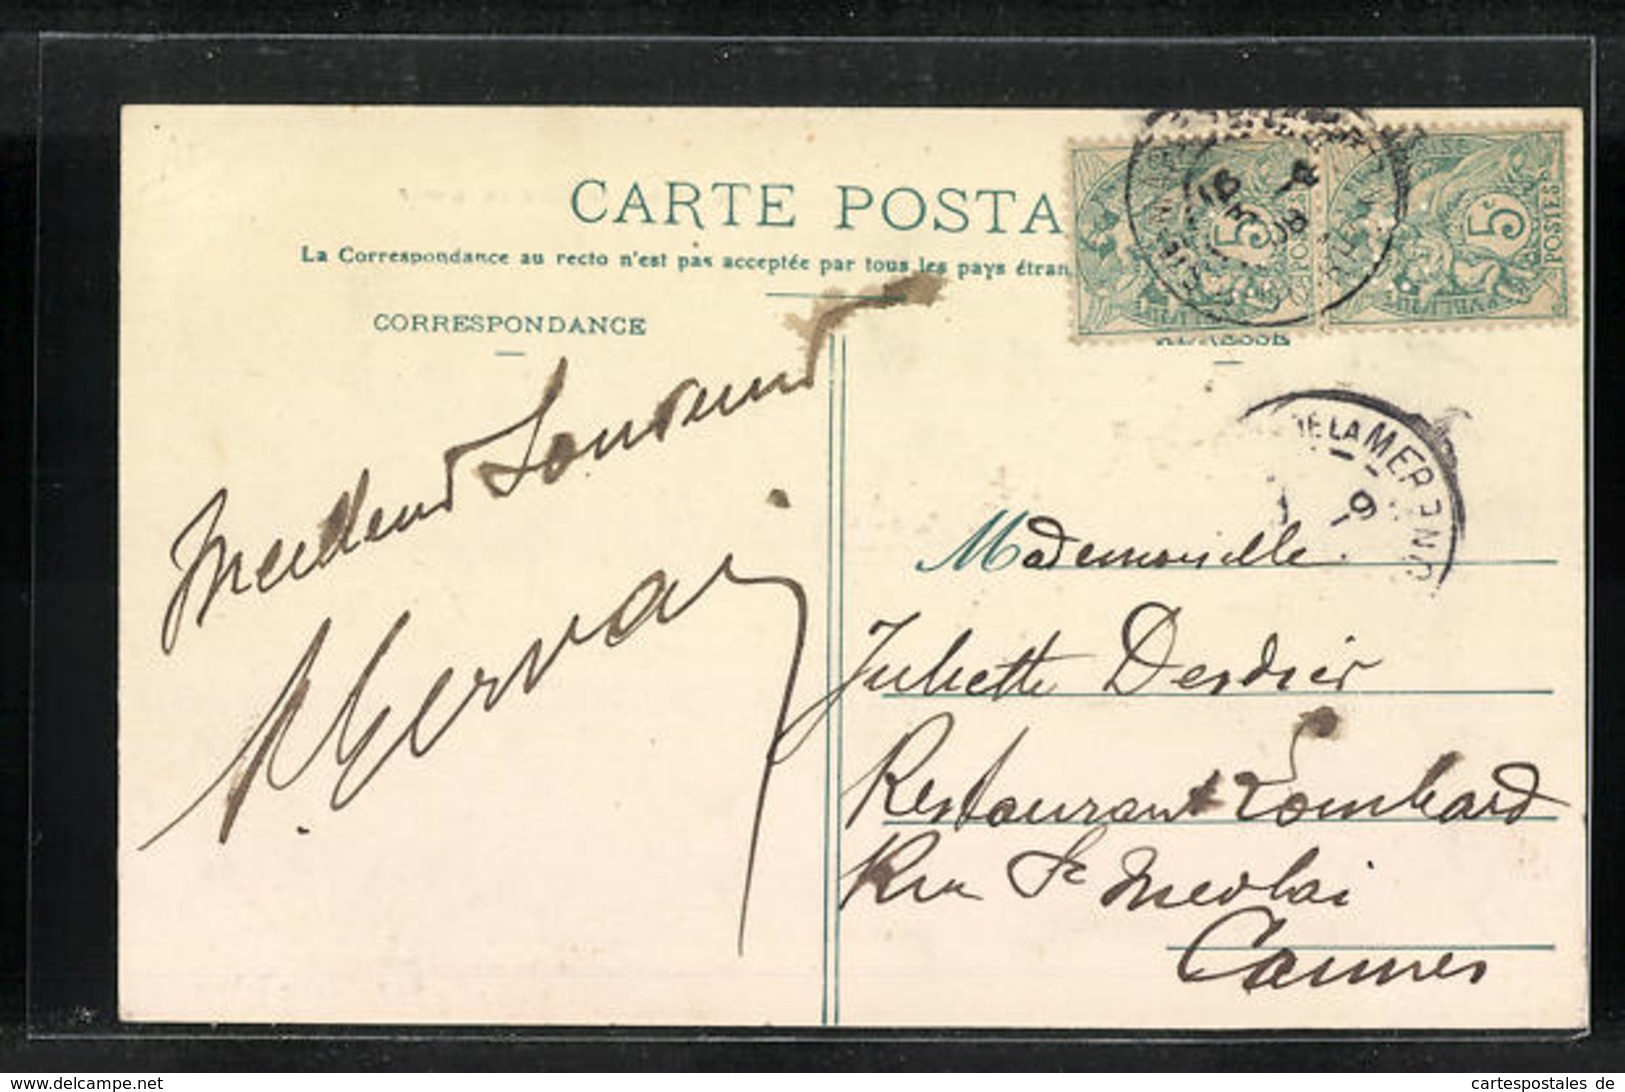 CARTE POSTA
La Correspondance au recto n'est pas acceptée par tous les pays étran
CORRESPONDANCE
ADRESSE
5c
POSTES
5c
POSTES
16
08
DE LA MER
Meilleur Souvenir
Gervais
Mademoiselle
Juliette Desdier
Restaurant Lombard
Rue St
Cannes
www.delcampe.net
cartespostales de